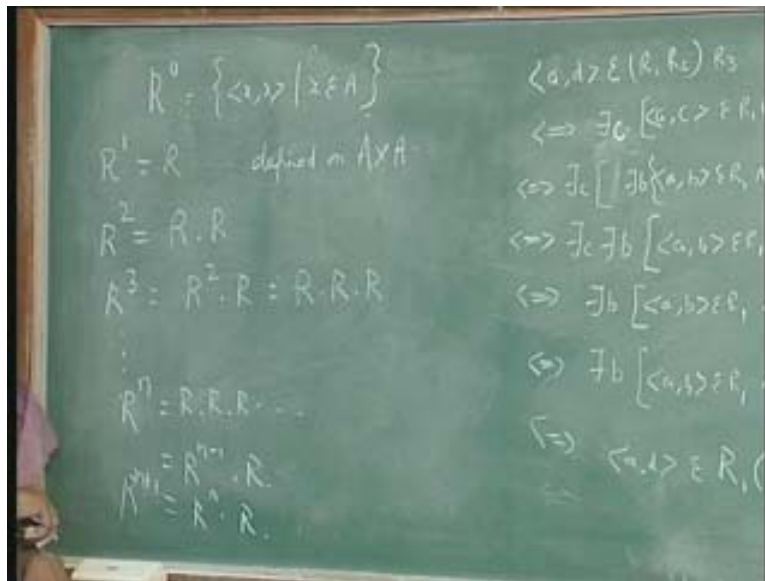 R⁰ = {<x,x> | x ε A}
R¹ = R defined on A×A
R² = R.R
R³ = R².R = R.R.R
⋮
Rⁿ = R.R.R....
= Rⁿ⁻¹.R.
Rⁿ⁺¹ = Rⁿ.R.
<a,d> ε (R₁R₂) R₃
<=> ∃c [<a,c> ε R₁
<=> ∃c [ ∃b{<a,b> ε R₁ ∧
<=> ∃c ∃b [<a,b> ε R₁
<=> ∃b [<a,b> ε R₁
<=> ∃b [<a,b> ε R₁
<=> <a,d> ε R₁(